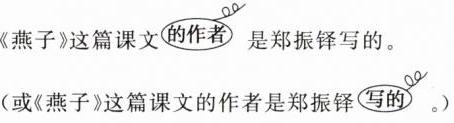 《燕子》这篇课文的作者 是郑振铎写的。
(或《燕子》这篇课文的作者是郑振铎写的。)